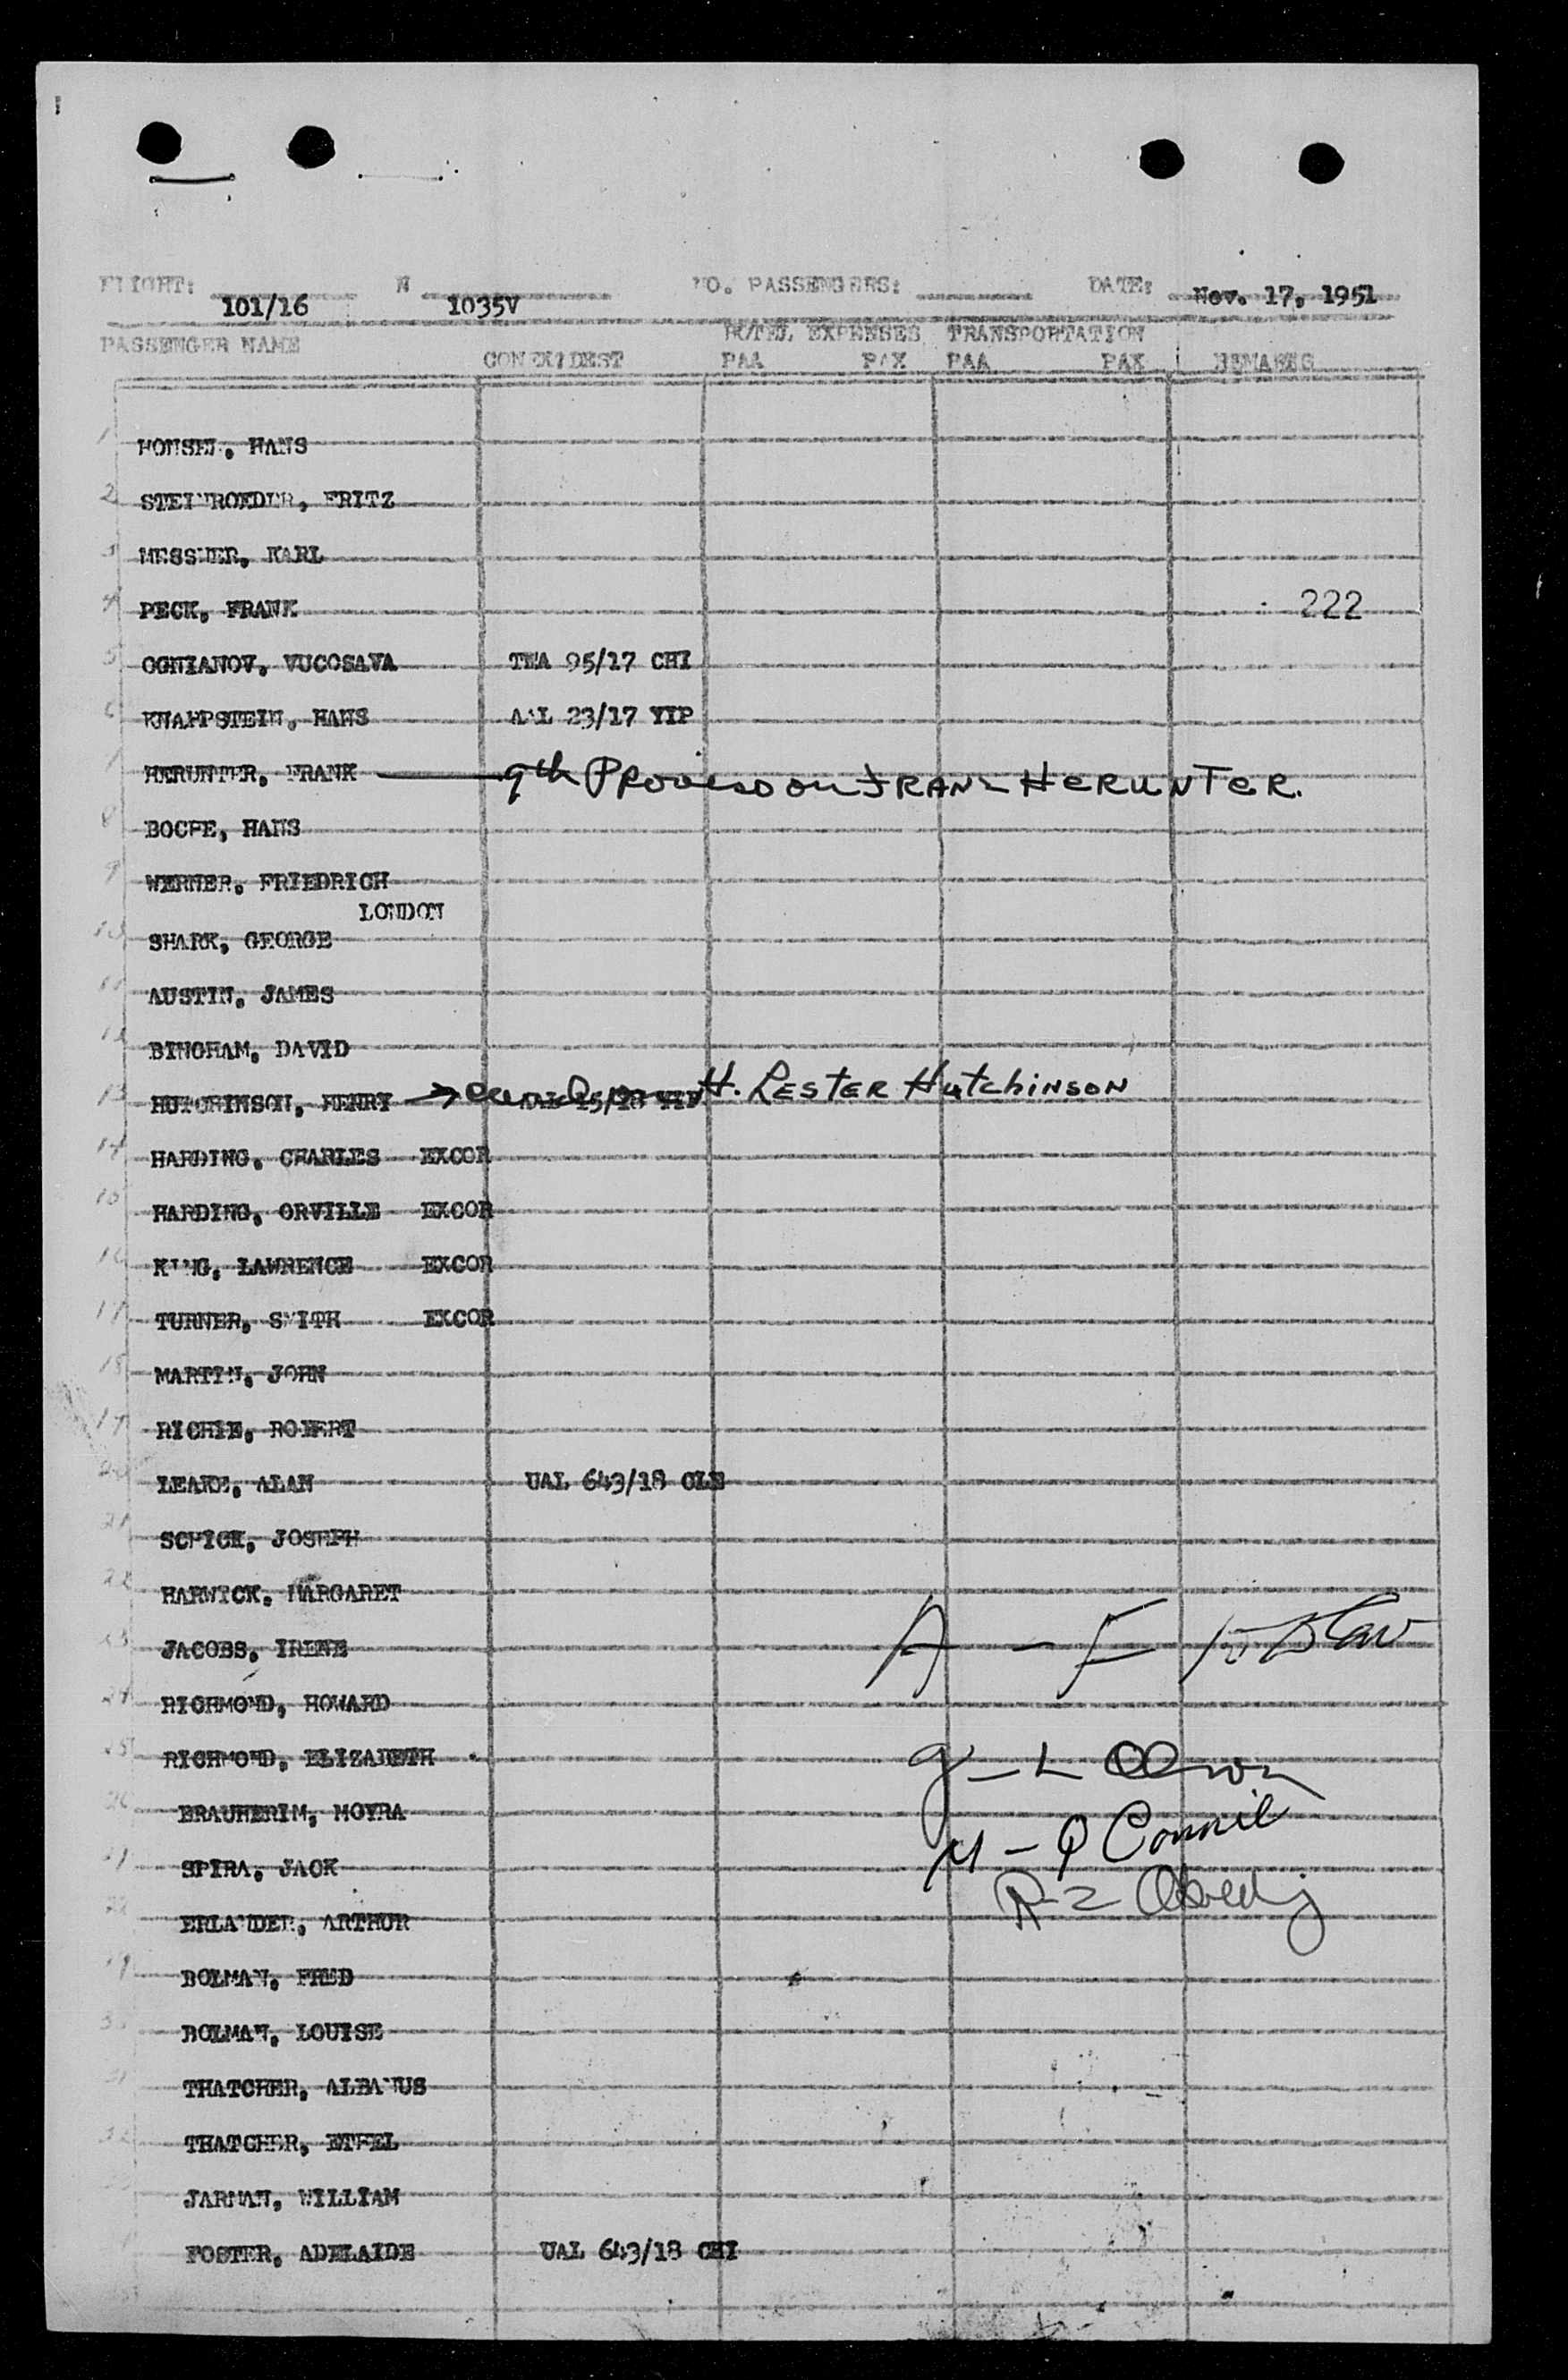 FLIGHT: 101/16 N 1035V NO. PASSENGERS: DATE: Nov. 17, 1951
HOTEL EXPENSES TRANSPORTATION
PASSENGER NAME CONEX/DEST PAA PAX PAA PAX REMARKS
1 HANS
2 FRITZ
3 MESSNER, KARL
4 PECK, FRANK 222
5 OGNIANOV, VUCOSAVA TWA 95/17 CHI
6 KNAPPSTEIN, HANS AAL 23/17 YIP
7 HERUNTER, FRANK 9th Proviso on FRANZ HERUNTER.
8 HANS
9 WERNER, FRIEDRICH
LONDON
10 SHARK, GEORGE
11 AUSTIN, JAMES
12 BINGHAM, DAVID
13 HUTCHINSON, HENRY → H. LESTER HUTCHINSON
14 HARDING, CHARLES EXCOR
15 HARDING, ORVILLE EXCOR
16 KING, LAWRENCE EXCOR
17 TURNER, SMITH EXCOR
18 MARTIN, JOHN
19 RICHIE, ROBERT
20 LEAKE, ALAN UAL 643/18 CLE
21 SCHICK, JOSEPH
22 HARWICK, MARGARET
23 JACOBS, IRENE A - F
24 RICHMOND, HOWARD
25 RICHMOND, ELIZABETH G - L
26 BRAUHERIM, MOYRA
27 SPIRA, JACK M - Q
28 ERLANDER, ARTHUR R - Z
29 BOLMAN, FRED
30 BOLMAN, LOUISE
31 THATCHER, ALBANUS
32 THATCHER, ETHEL
JARMAN, WILLIAM
FOSTER, ADELAIDE UAL 643/18 CHI